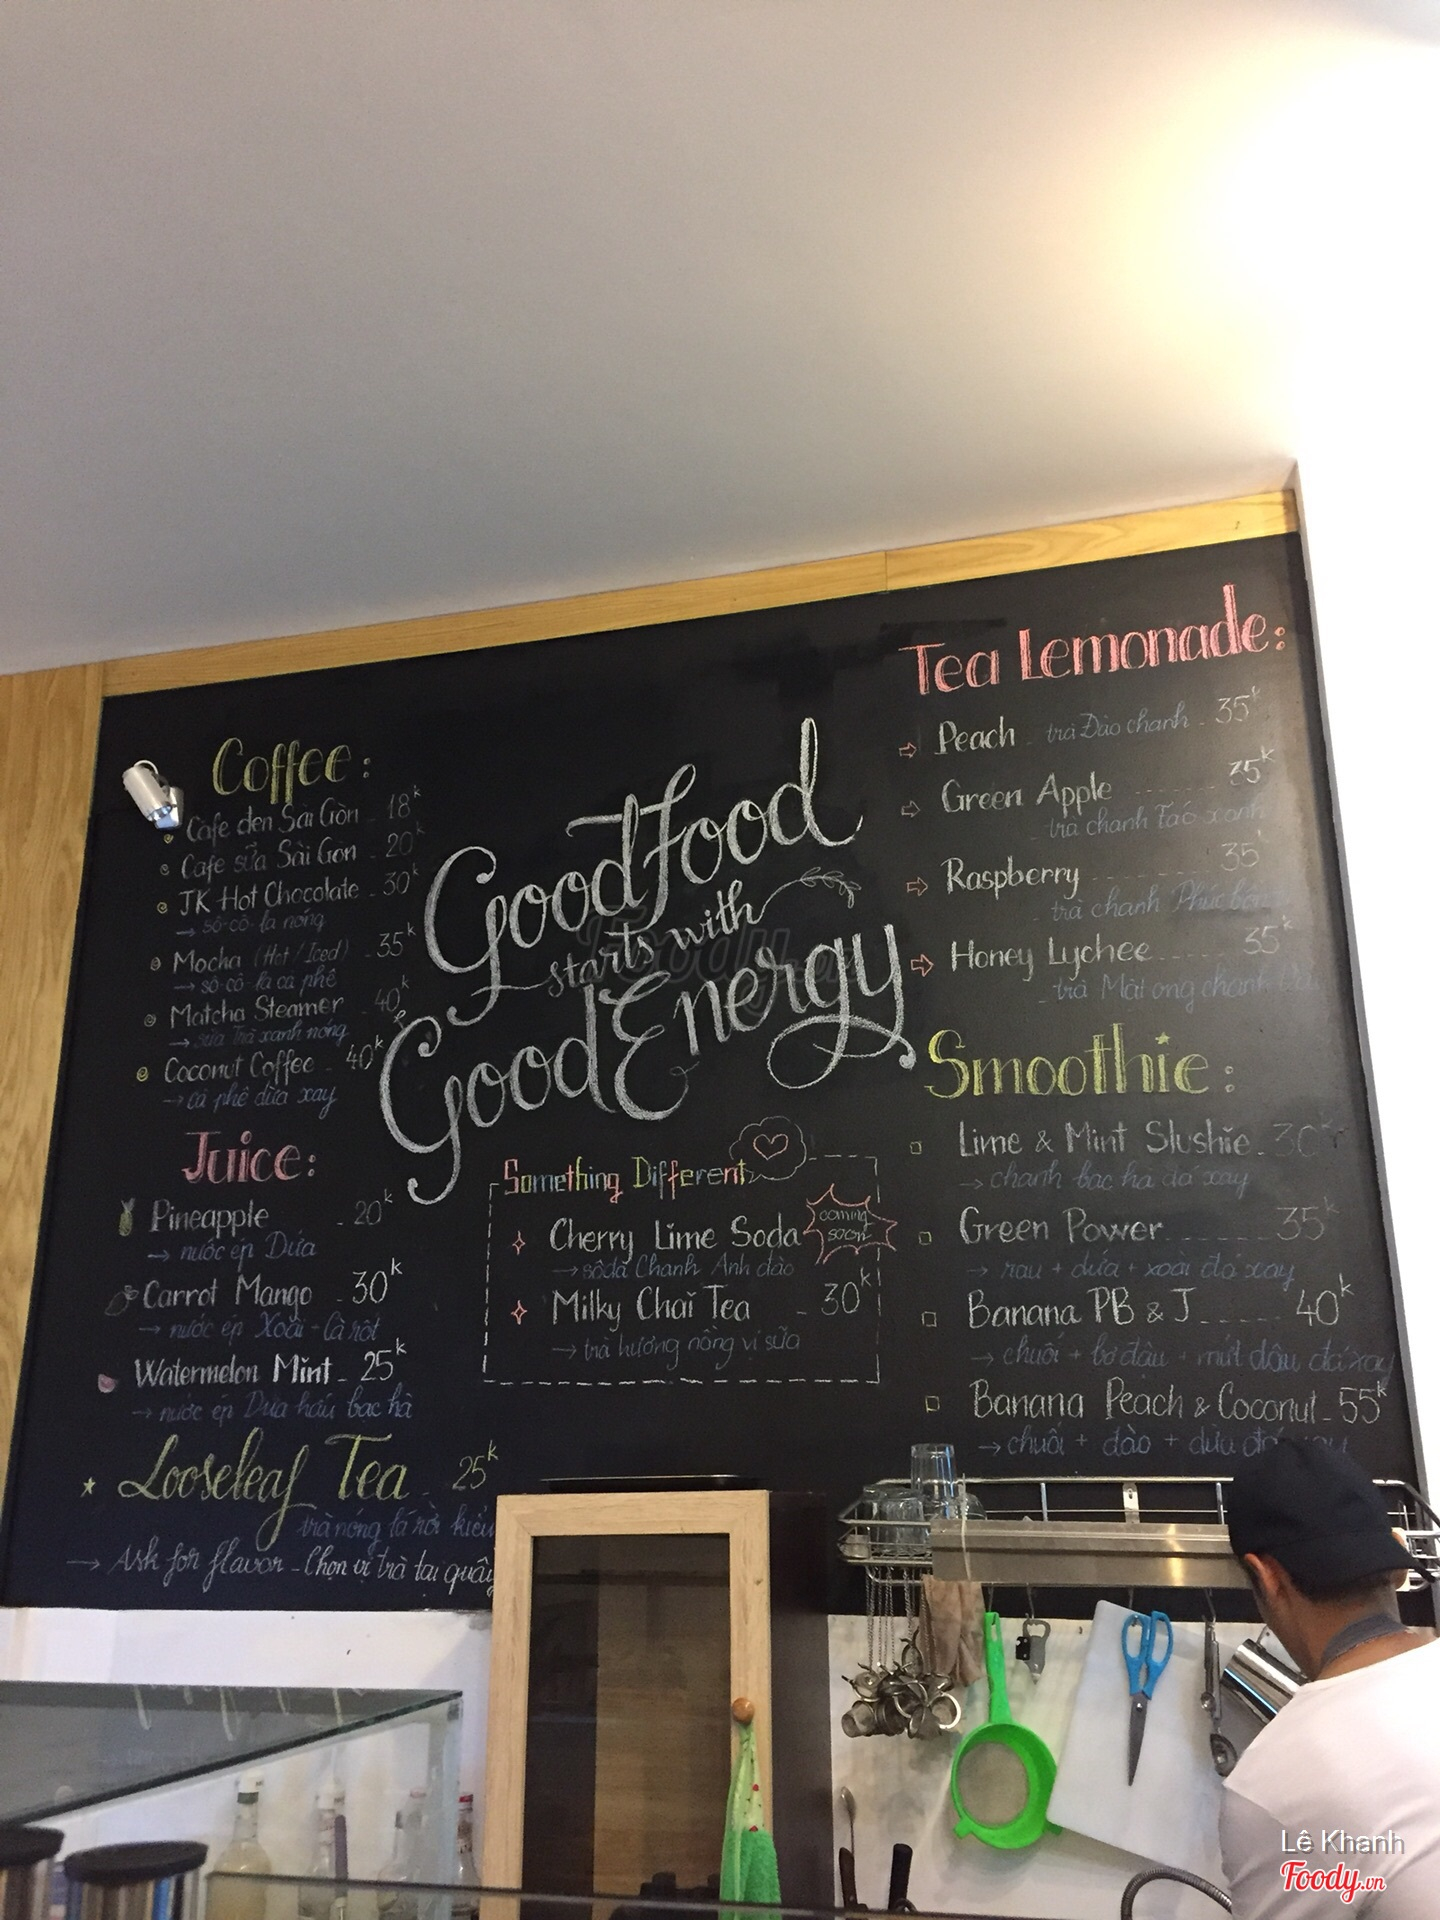 Coffee:
Cafe đen Sài Gòn - 18k
Cafe sữa Sài Gon - 20k
JK Hot Chocolate - 30k
→ sô-cô-la nóng
Mocha (Hot/Iced) - 35k
→ sô-cô-la cà phê
Matcha Steamer - 40k
→ sữa Trà xanh nóng
Coconut Coffee - 40k
→ cà phê dừa xay
Juice:
Pineapple - 20k
→ nước ép Dứa
Carrot Mango - 30k
→ nước ép Xoài - Cà rốt
Watermelon Mint - 25k
→ nước ép Dưa hấu bạc hà
Looseleaf Tea - 25k
trà nóng lá rời
→ Ask for flavor - Chọn vị trà tại quầy
Good Food
starts with
Good Energy
Something Different
Cherry Lime Soda
coming soon
→ sôda Chanh Anh đào
Milky Chai Tea - 30k
→ trà hương nồng vị sữa
Tea Lemonade:
Peach trà Đào chanh - 35k
Green Apple ------ 35k
trà chanh Táo xanh
Raspberry ------ 35k
trà chanh Phúc bồn
Honey Lychee ---- 35k
trà Mật ong chanh
Smoothie:
Lime & Mint Slushie - 30k
→ chanh bạc hà đá xay
Green Power ------ 35k
→ rau + dứa + xoài đá xay
Banana PB & J ----- 40k
→ chuối + bơ đậu + mứt dâu đá xay
Banana Peach & Coconut - 55k
→ chuối + đào + dừa đá xay
Foody.vn
Lê Khanh
Foody.vn